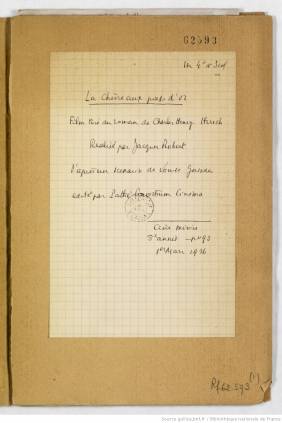 62593
in 4° R Sup.
La Chèvre aux pieds d'or
Film tiré du roman de Charles Henry Hirsch
Réalisé par Jacques Robert
D'après un scénario de Louis
édité par Pathé Consortium Cinéma
Ciné miroir
5e année — n° 93
1er Mars 1926
Rf 62.593
Source gallica.bnf.fr / Bibliothèque nationale de France